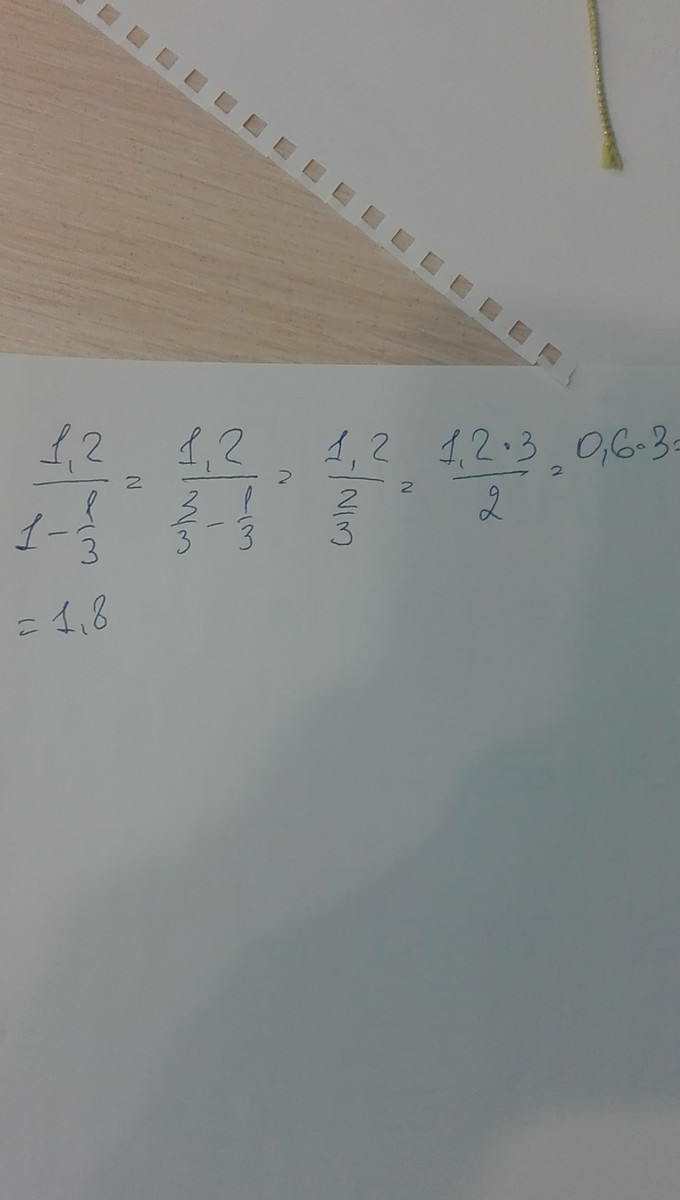 1,2/(1-1/3) = 1,2/(3/3-1/3) = 1,2/(2/3) = 1,2·3/2 = 0,6·3=
= 1,8